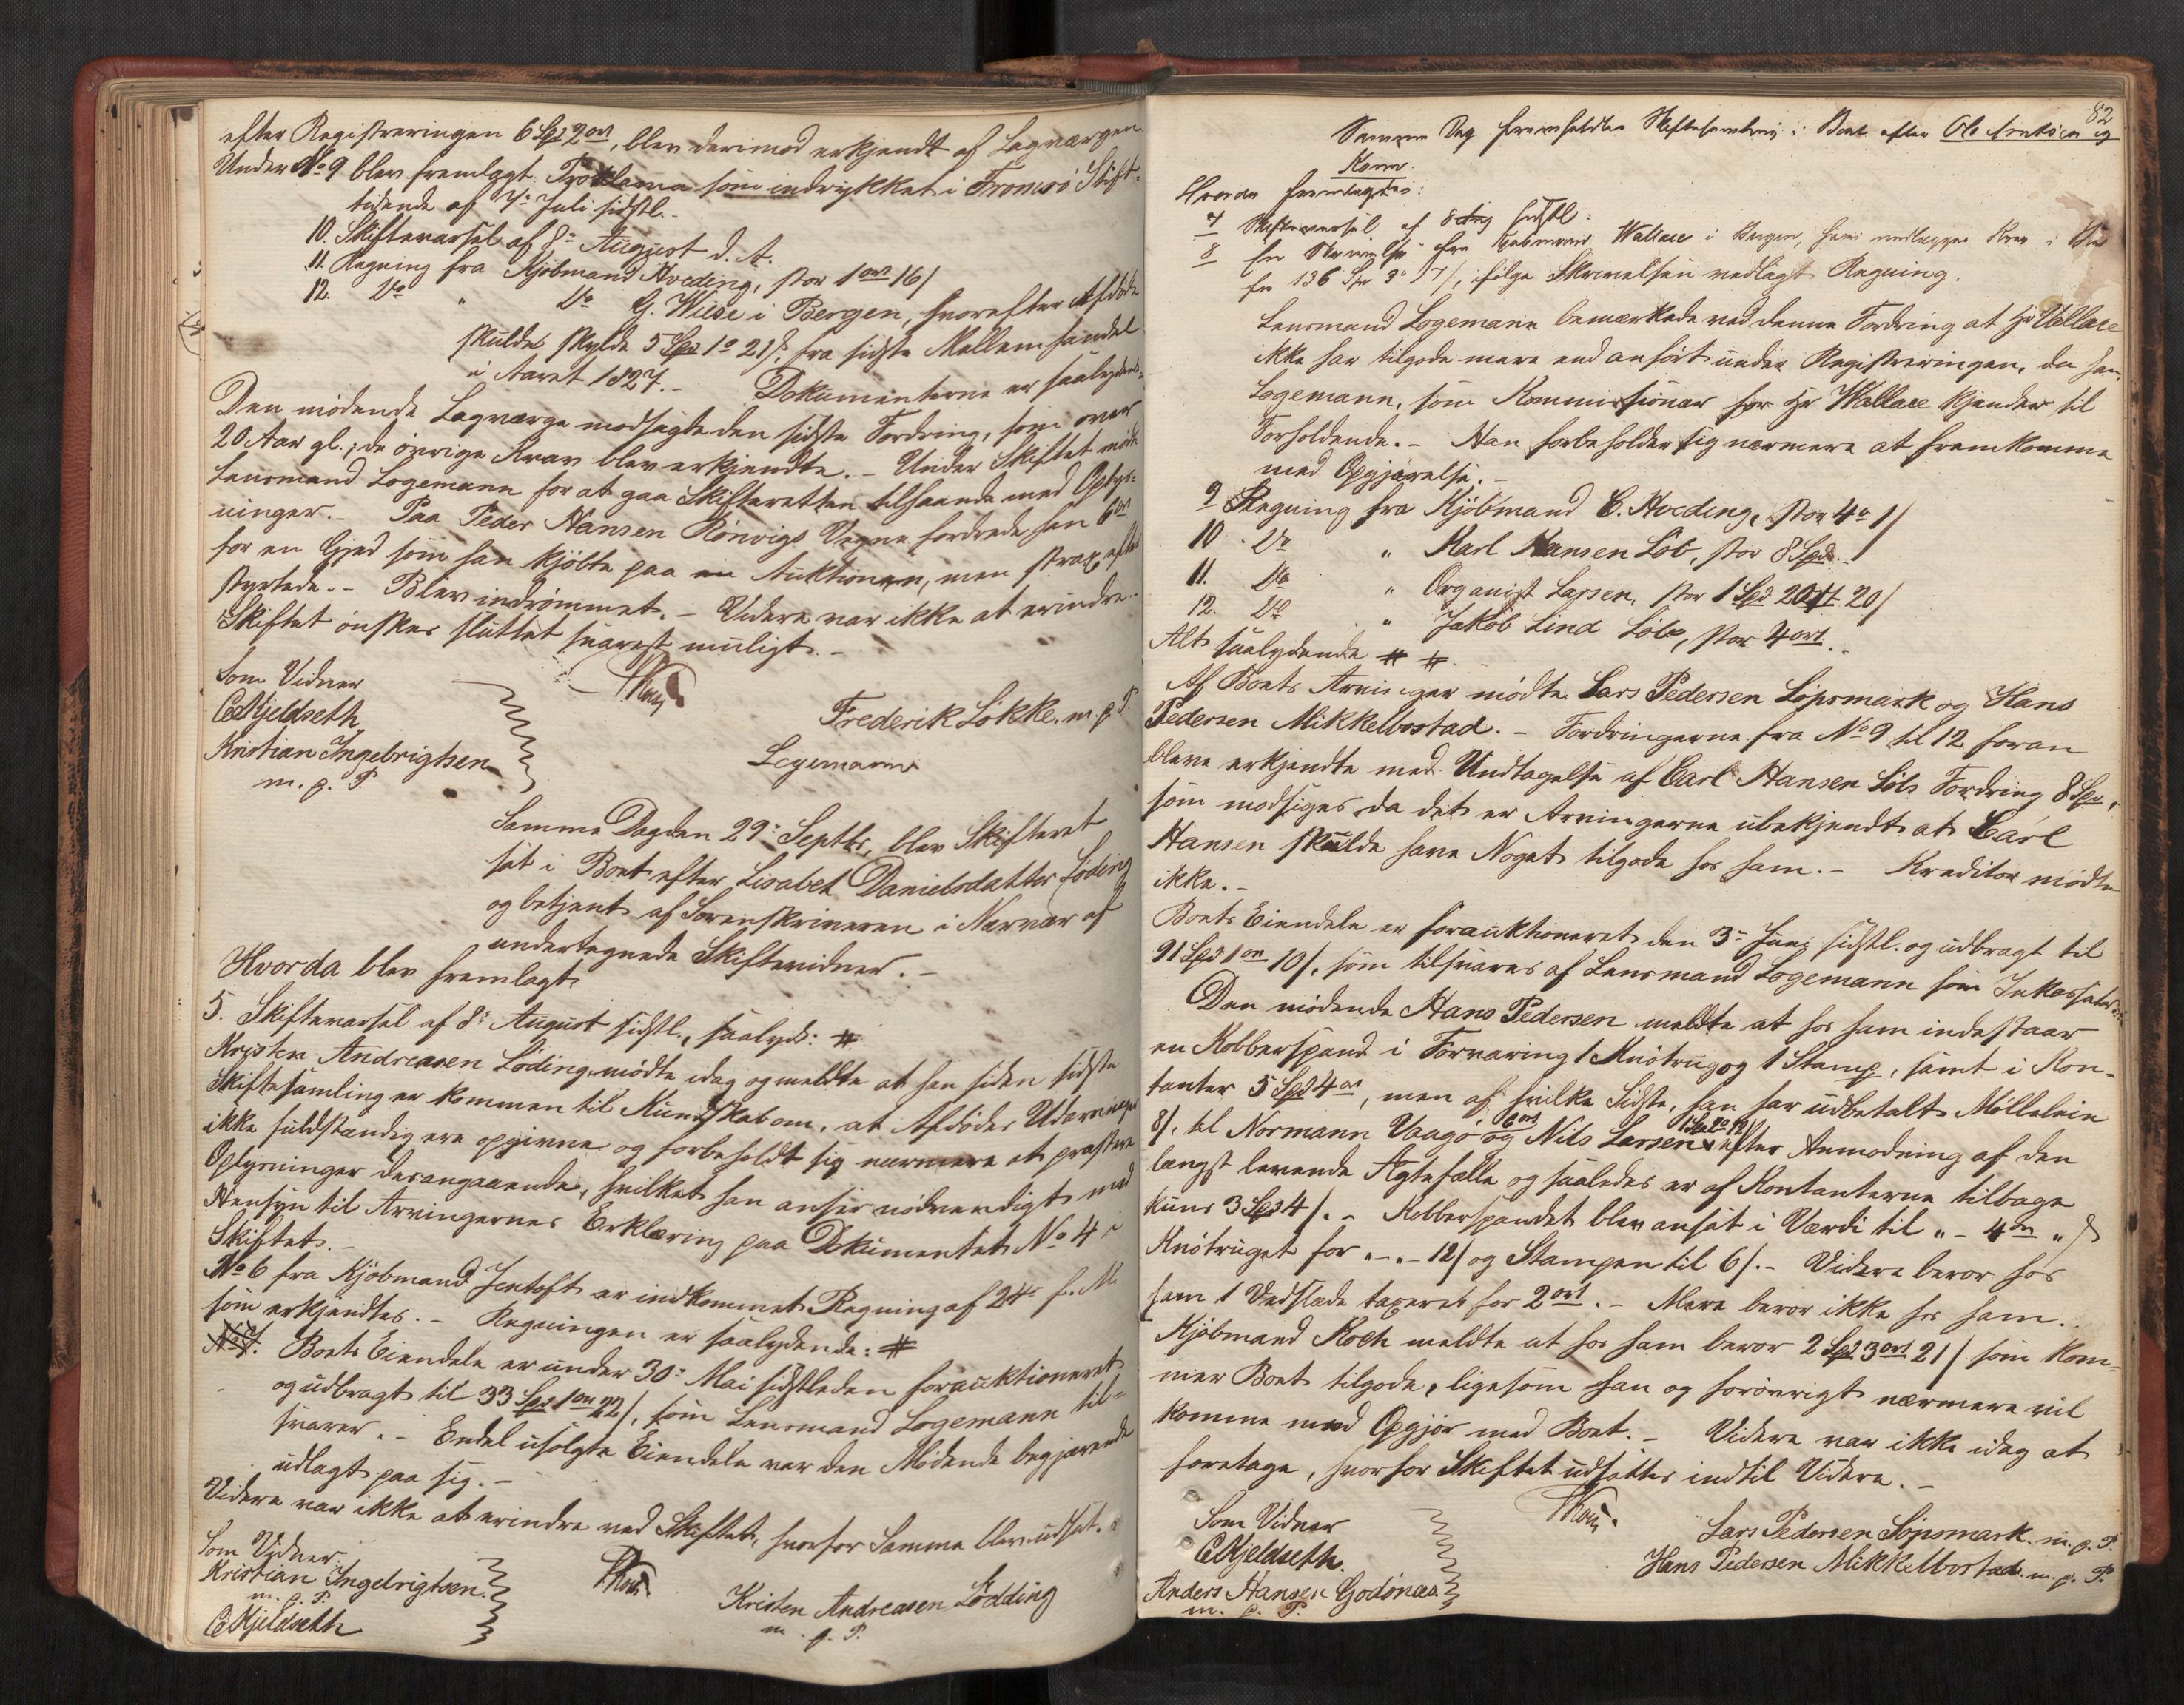 efter Registreringen 6 Spd 2 ort, blev derimod erkjendt af Lagværgen
Under No 9 blev fremlagt Proklama som indrykket i Tromsö Stift-
tidende af 7de Juli sidstl.
10. Skiftevarsel af 8de August d. A.
11. Regning fra Kjöbmand Hveding, stor 1 ort 16/
12. Do " Do G. Wiese i Bergen, hvorefter Afdöde
skulde skylde 5 Spd 1 o 21 s, fra sidste Mellemhandel
i Aaret 1827. - Dokumenterne er saalydende
Den mödende Lagværge modsagde den sidste Fordring, som over
20 Aar gl.; de övrige Krav blev erkjendte. - Under Skiftet mödte
Lensmand Logemann for at gaa Skifteretten tilhaande med Oplys-
ninger. - Paa Peder Hansen Rönvigs Vegne fordrede han 6 ort
for en Gjed som han kjöbte paa en Auktionen, men strax efter
styrtede. - Blev indrömmet. - Videre var ikke at erindre.
Skiftet önskes sluttet snarest muligt. -
Som Vidner
CKjeldseth
Kristian Ingebrigtsen
m. p. P.
Frederik Lökke m. p. P.
Logemann
Samme Dag den 29de Septbr, blev Skifteret
sat i Boet efter Lisabet Danielsdatter Löding
og betjent af Sorenskriveren i Nærvær af
undertegnede Skiftevidner. -
Hvorda blev fremlagt
5. Skiftevarsel af 8de August sidstl., saalyd: #
Kristen Andreasen Löding mödte idag og meldte at han siden sidste
Skiftesamling er kommen til Kundskab om, at Afdödes Udarvinger
ikke fuldstændig ere opgivne og forbeholdt sig nærmere at præstere
Oplysninger desangaaende, hvilket han anser nödvendigt med
Hensyn til Arvingernes Erklæring paa Dokumentet No 4 i
Skiftet. -
No 6 fra Kjöbmand Jentoft er indkommet Regning af 24de f. M.
som erkjendtes. - Regningen er saalydende: #
No 7. Boets Eiendele er under 30de Mai sidstleden forauktioneret
og udbragt til 33 Spd 1 ort 22/, som Lensmand Logemann til-
svarer. - Endel usolgte Eiendele var den Mödende begjærende
udlagt paa sig. -
Videre var ikke at erindre ved Skiftet, hvorfor Samme blev udsat.
Som Vidner
Kristian Ingebrigtsen.
m. p. P.
CKjeldseth
Kristen Andreasen Lödding
m. p. P.
82
Samme Dag fremholdtes Skiftesamling i Boet efter Ole og
Kone.
Hvorda fremlagdes:
7 Skiftevarsel af 8 Aug sidstl:
8 en Skrivelse fra Kjöbmand Wallace i Bergen, som nedlægger Krav i Boet
for 136 Spd 3 o 17/, ifölge Skrivelsen vedlagt Regning.
Lensmand Logemann bemærkede ved denne Fordring at Hr Wallace
ikke har tilgode mere end anfört under Registreringen, da han,
Logemann, som Kommissionær for Hr Wallace kjender til
Forholdende. - Han forbeholder sig nærmere at fremkomme
med Opgjörelse. -
9 Regning fra Kjöbmand C. Hveding, stor 4 o 1/
10 Do " Karl Hansen Löb, stor 8 Spd.
11. Do " Organist Larsen, stor 1 Spd 2 ort 20/
12. Do " Jakob Lind Löb, stor 4 ort.
Alt saalydende # #.
Af Boets Arvinger mödte Lars Pedersen Löpsmark og Hans
Pedersen Mikkelbostad. - Fordringerne fra No 9 til 12 foran
bleve erkjendte med Undtagelse af Carl Hansen Löbs Fordring 8 Spd,
som modsiges, da det er Arvingerne ubekjendt at Carl
Hansen skulde have Noget tilgode hos ham. - Kreditor mödte
ikke. -
Boets Eiendele er forauktioneret den 3de Juni sidstl. og udbragt til
91 Spd 1 ort 10/, som tilsvares af Lensmand Logemann som Inkassator.
Den mödende Hans Pedersen meldte at hos ham indestaar
en Kobberspand i Forvaring 1 Knötrug og 1 Stamp, samt i Kon-
tanter 5 Spd 4 ort, men af hvilke Sidste, han har udbetalt Mölleleie
8/, til Normann Vaagö 6 ort og Nils Larsen efter Anmodning af den
længst levende Ægtefælle og saaledes er af Kontanterne tilbage
kuns 3 Spd 4/. - Kobberspandet blev ansat i Værdi til " - 4 ort " s
Knötruget for " - " - 12/ og Stampen til 6/. - Videre beror hos
ham 1 Vedslæde taxeret for 2 ort. - Mere beror ikke hos ham.
Kjöbmand Koch meldte at hos ham beror 2 Spd 3 ort 21/ som kom-
mer Boet tilgode, ligesom han og forövrigt nærmere vil
komme med Opgjör med Boet. - Videre var ikke idag at
foretage, hvorfor Skiftet udsattes indtil Videre. -
Som Vidner
CKjeldseth.
Anders Hansen Godönæs
m. p. P.
Lars Pedersen Löpsmark m. p. P.
Hans Pedersen Mikkelbostad m. p. P.